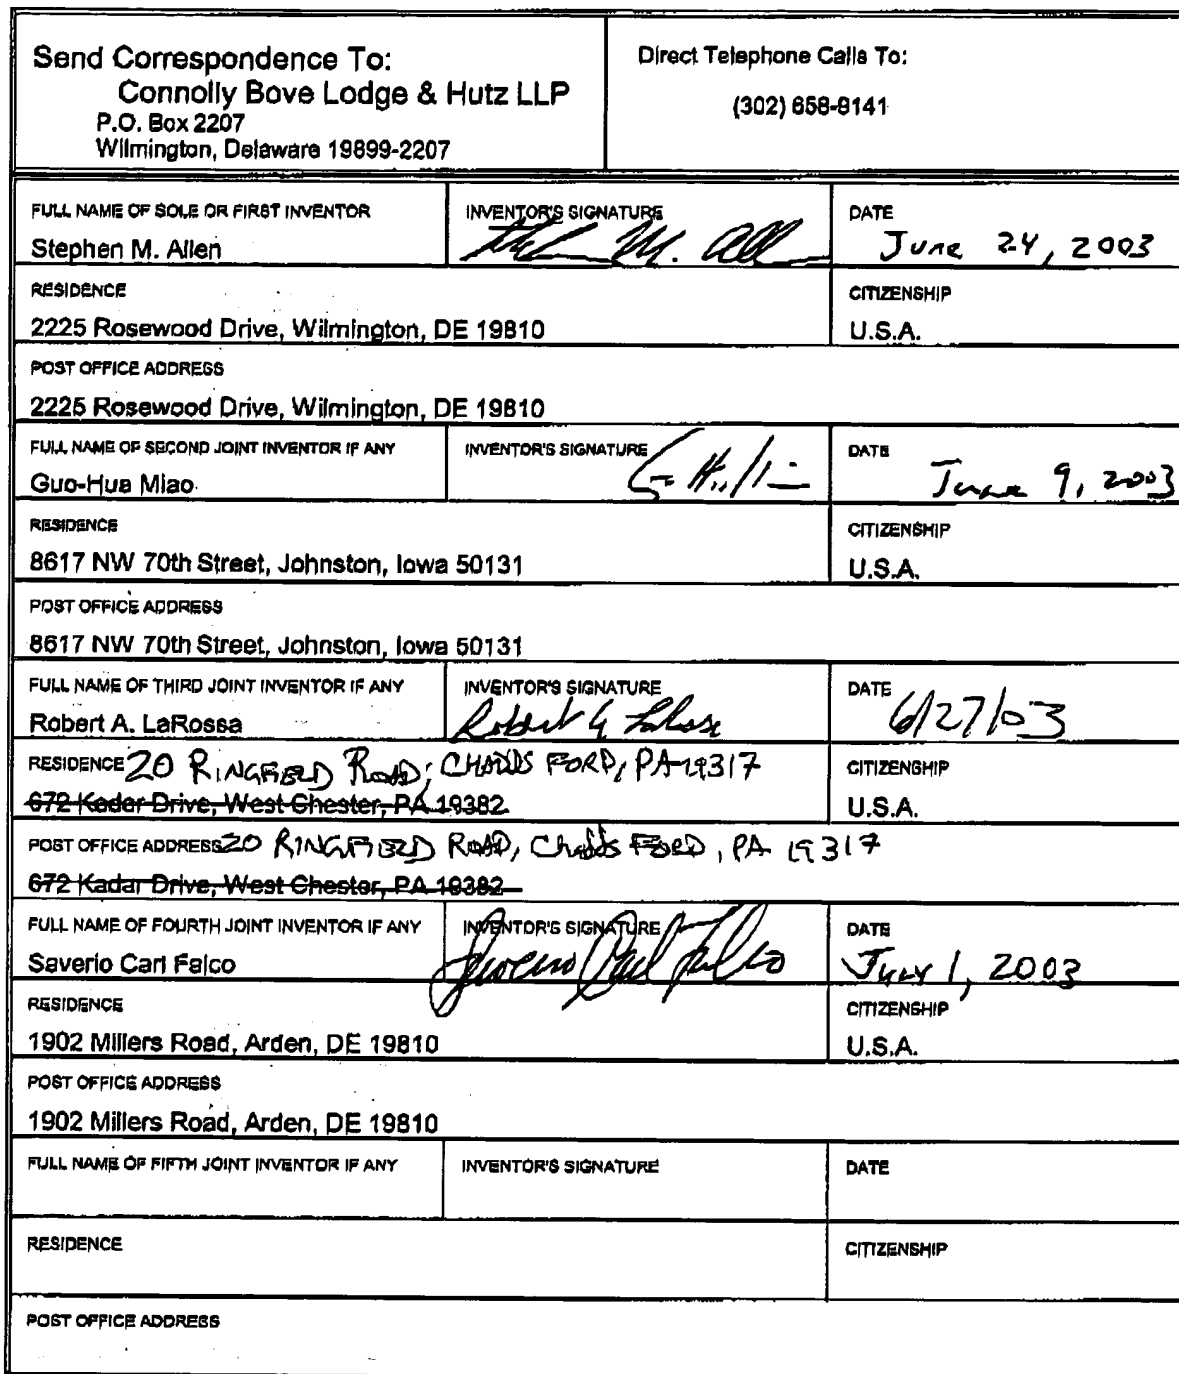 Send Correspondence To:
Connolly Bove Lodge & Hutz LLP
P.O. Box 2207
Wilmington, Delaware 19899-2207
Direct Telephone Calls To:
(302) 658-9141
FULL NAME OF SOLE OR FIRST INVENTOR
Stephen M. Allen
INVENTOR'S SIGNATURE
DATE
June 24, 2003
RESIDENCE
2225 Rosewood Drive, Wilmington, DE 19810
CITIZENSHIP
U.S.A.
POST OFFICE ADDRESS
2225 Rosewood Drive, Wilmington, DE 19810
FULL NAME OF SECOND JOINT INVENTOR IF ANY
Guo-Hua Miao
INVENTOR'S SIGNATURE
DATE
June 9, 2003
RESIDENCE
8617 NW 70th Street, Johnston, Iowa 50131
CITIZENSHIP
U.S.A.
POST OFFICE ADDRESS
8617 NW 70th Street, Johnston, Iowa 50131
FULL NAME OF THIRD JOINT INVENTOR IF ANY
Robert A. LaRossa
INVENTOR'S SIGNATURE
Robert A LaRossa
DATE 6/27/03
RESIDENCE 20 RINGFIELD ROAD, CHADDS FORD, PA 19317
672 Kadar Drive, West Chester, PA 19382
CITIZENSHIP
U.S.A.
POST OFFICE ADDRESS 20 RINGFIELD ROAD, Chadds FORD, PA 19317
672 Kadar Drive, West Chester, PA 19382
FULL NAME OF FOURTH JOINT INVENTOR IF ANY
Saverio Carl Falco
INVENTOR'S SIGNATURE
Saverio Carl Falco
DATE
July 1, 2003
RESIDENCE
1902 Millers Road, Arden, DE 19810
CITIZENSHIP
U.S.A.
POST OFFICE ADDRESS
1902 Millers Road, Arden, DE 19810
FULL NAME OF FIFTH JOINT INVENTOR IF ANY
INVENTOR'S SIGNATURE
DATE
RESIDENCE
CITIZENSHIP
POST OFFICE ADDRESS